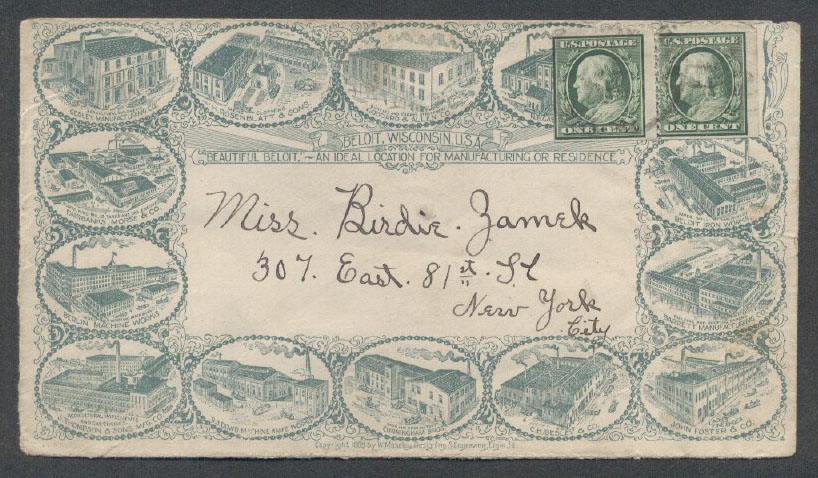 U.S. POSTAGE
ONE CENT
U.S. POSTAGE
ONE CENT
ROSENBLATT & SONS
BELOIT, WISCONSIN U.S.A.
"BEAUTIFUL BELOIT," ~ AN IDEAL LOCATION FOR MANUFACTURING OR RESIDENCE.
FAIRBANKS MORSE & CO.
BELOIT IRON WORKS
Miss. Birdie. Zamek
307. East. 81st. St
New York
City
BERLIN MACHINE WORKS
MANUFACTURING CO.
THOMPSON & SONS MFG. CO.
MACHINE KNIFE WORKS
CUNNINGHAM BROS.
C.H. BESLY & CO.
JOHN FOSTER & CO.
Copyright